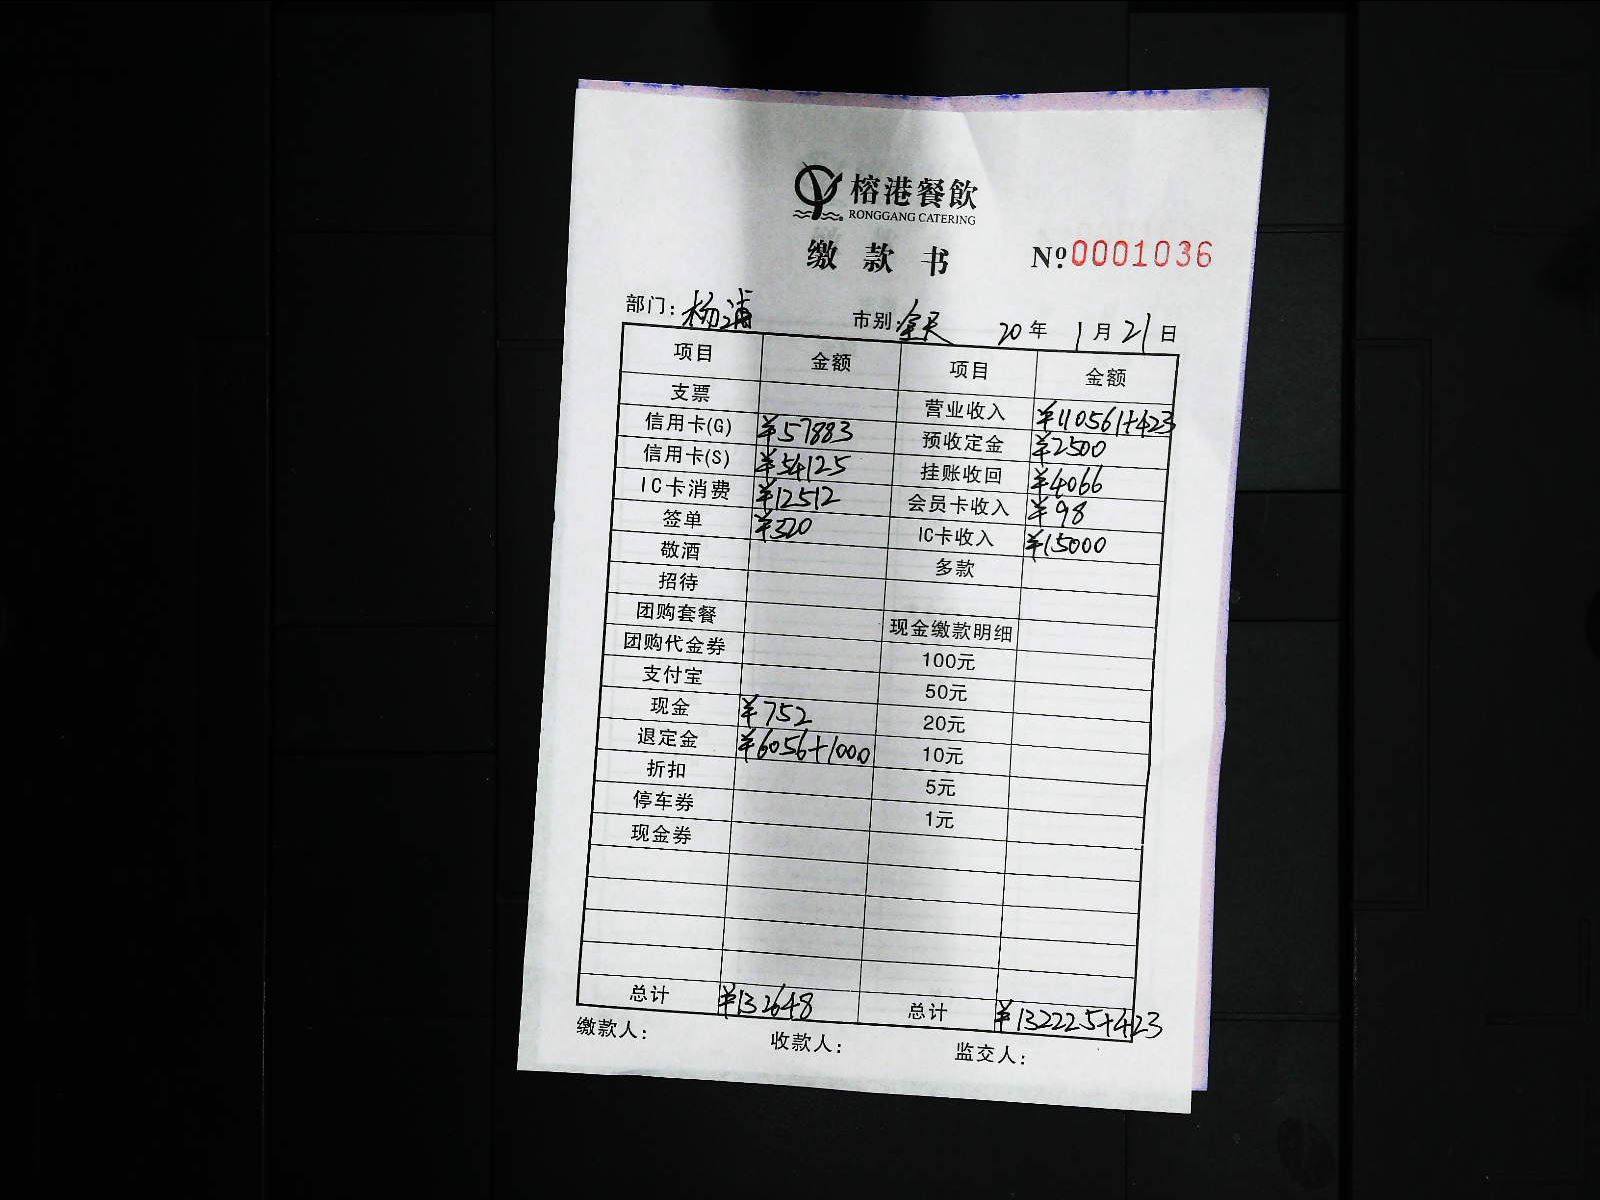 榕港餐飲
RONGGANG CATERING
缴款书 Nº0001036
部门: 杨浦 市别: 全天 20年 1月21日
项目 金额 项目 金额
支票 营业收入 ¥110561+423
信用卡(G) ¥57883 预收定金 ¥2500
信用卡(S) ¥54125 挂账收回 ¥4066
IC卡消费 ¥12512 会员卡收入 ¥98
签单 ¥320 IC卡收入 ¥15000
敬酒 多款
招待
团购套餐 现金缴款明细
团购代金券 100元
支付宝 50元
现金 ¥752 20元
退定金 ¥6056+1000 10元
折扣 5元
停车券 1元
现金券
总计 ¥132648 总计 ¥132225+423
缴款人: 收款人: 监交人: